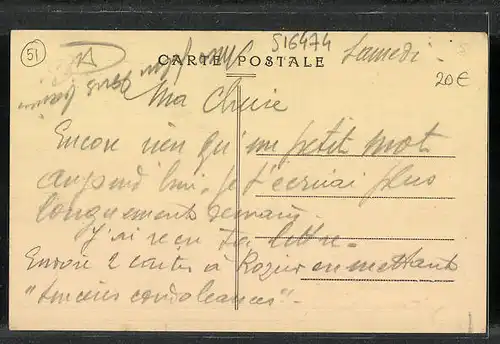 51 A S16474 Samedi
CARTE POSTALE
20€
Ma Chérie
Encore rien qu'un petit mot
aujourd'hui. Je t'écrirai plus
longuement demain.
J'ai reçu ta lettre.
Envoie 2 cartes à Rozier en mettant
"sincères condoléances".